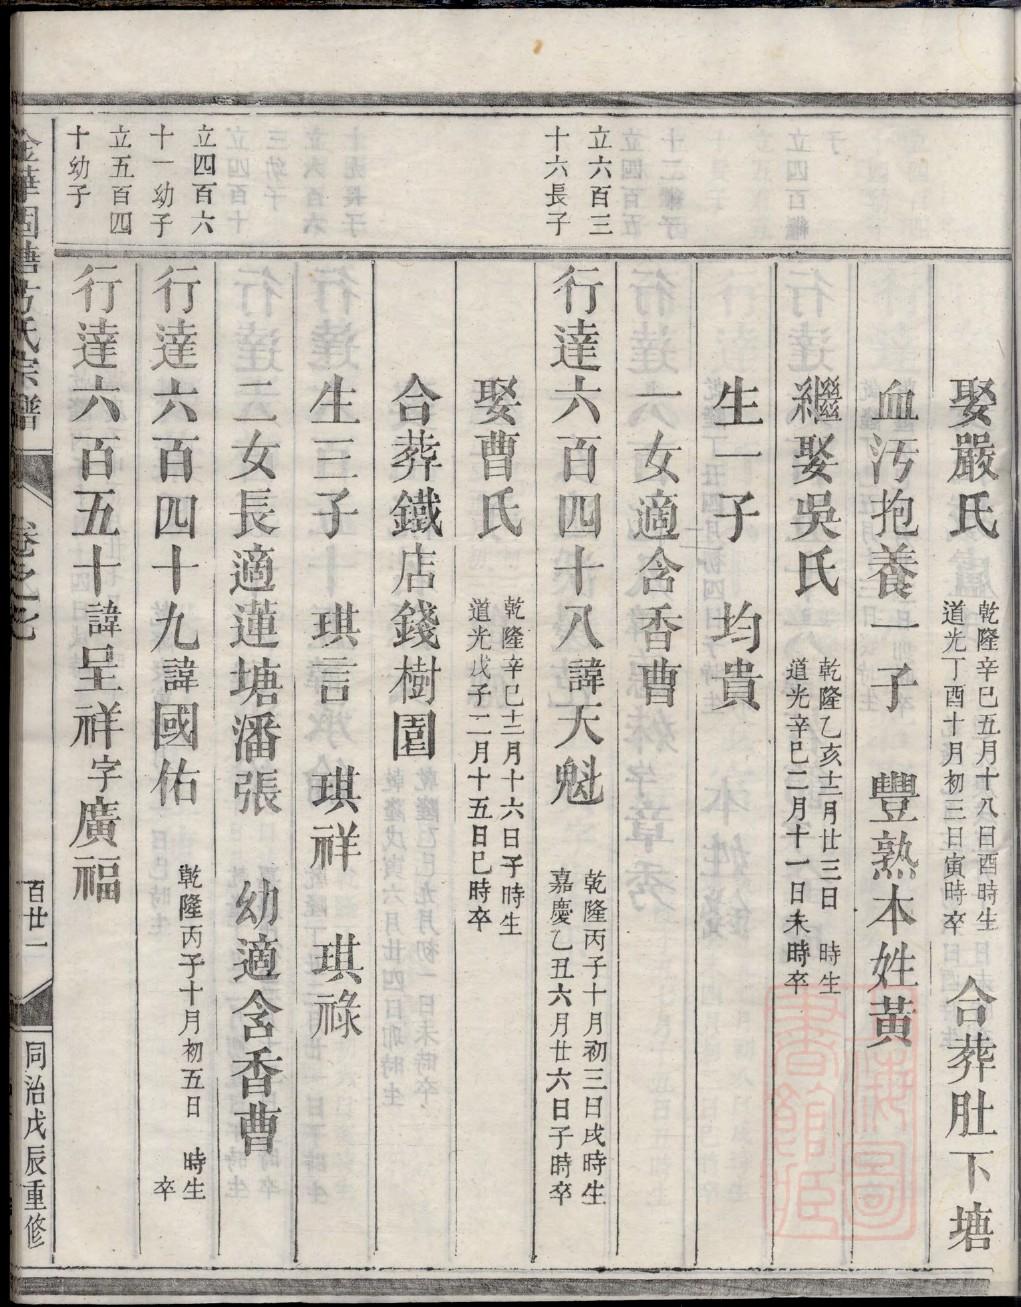 娶嚴氏 乾隆辛巳五月十八日酉時生 道光丁酉十月初三日寅時卒 合葬肚下塘
血汚抱養一子 豐熟本姓黃
繼娶吳氏 乾隆乙亥十二月廿三日 時生 道光辛巳二月十一日未時卒
生一子 均貴
一女適含香曹
立六百三十六長子
行達六百四十八諱天魁 乾隆丙子十月初三日戌時生 嘉慶乙丑六月廿六日子時卒
娶曹氏 乾隆辛巳十二月十六日子時生 道光戊子二月十五日巳時卒
合葬鐵店錢樹園
生三子 琪言 琪祥 琪祿
二女長適蓮塘潘張 幼適含香曹
立四百六十一幼子
行達六百四十九諱國佑 乾隆丙子十月初五日 時生 卒
立五百四十幼子
行達六百五十諱呈祥字廣福
金華固塘方氏宗譜 卷之七 百廿一 同治戊辰重修